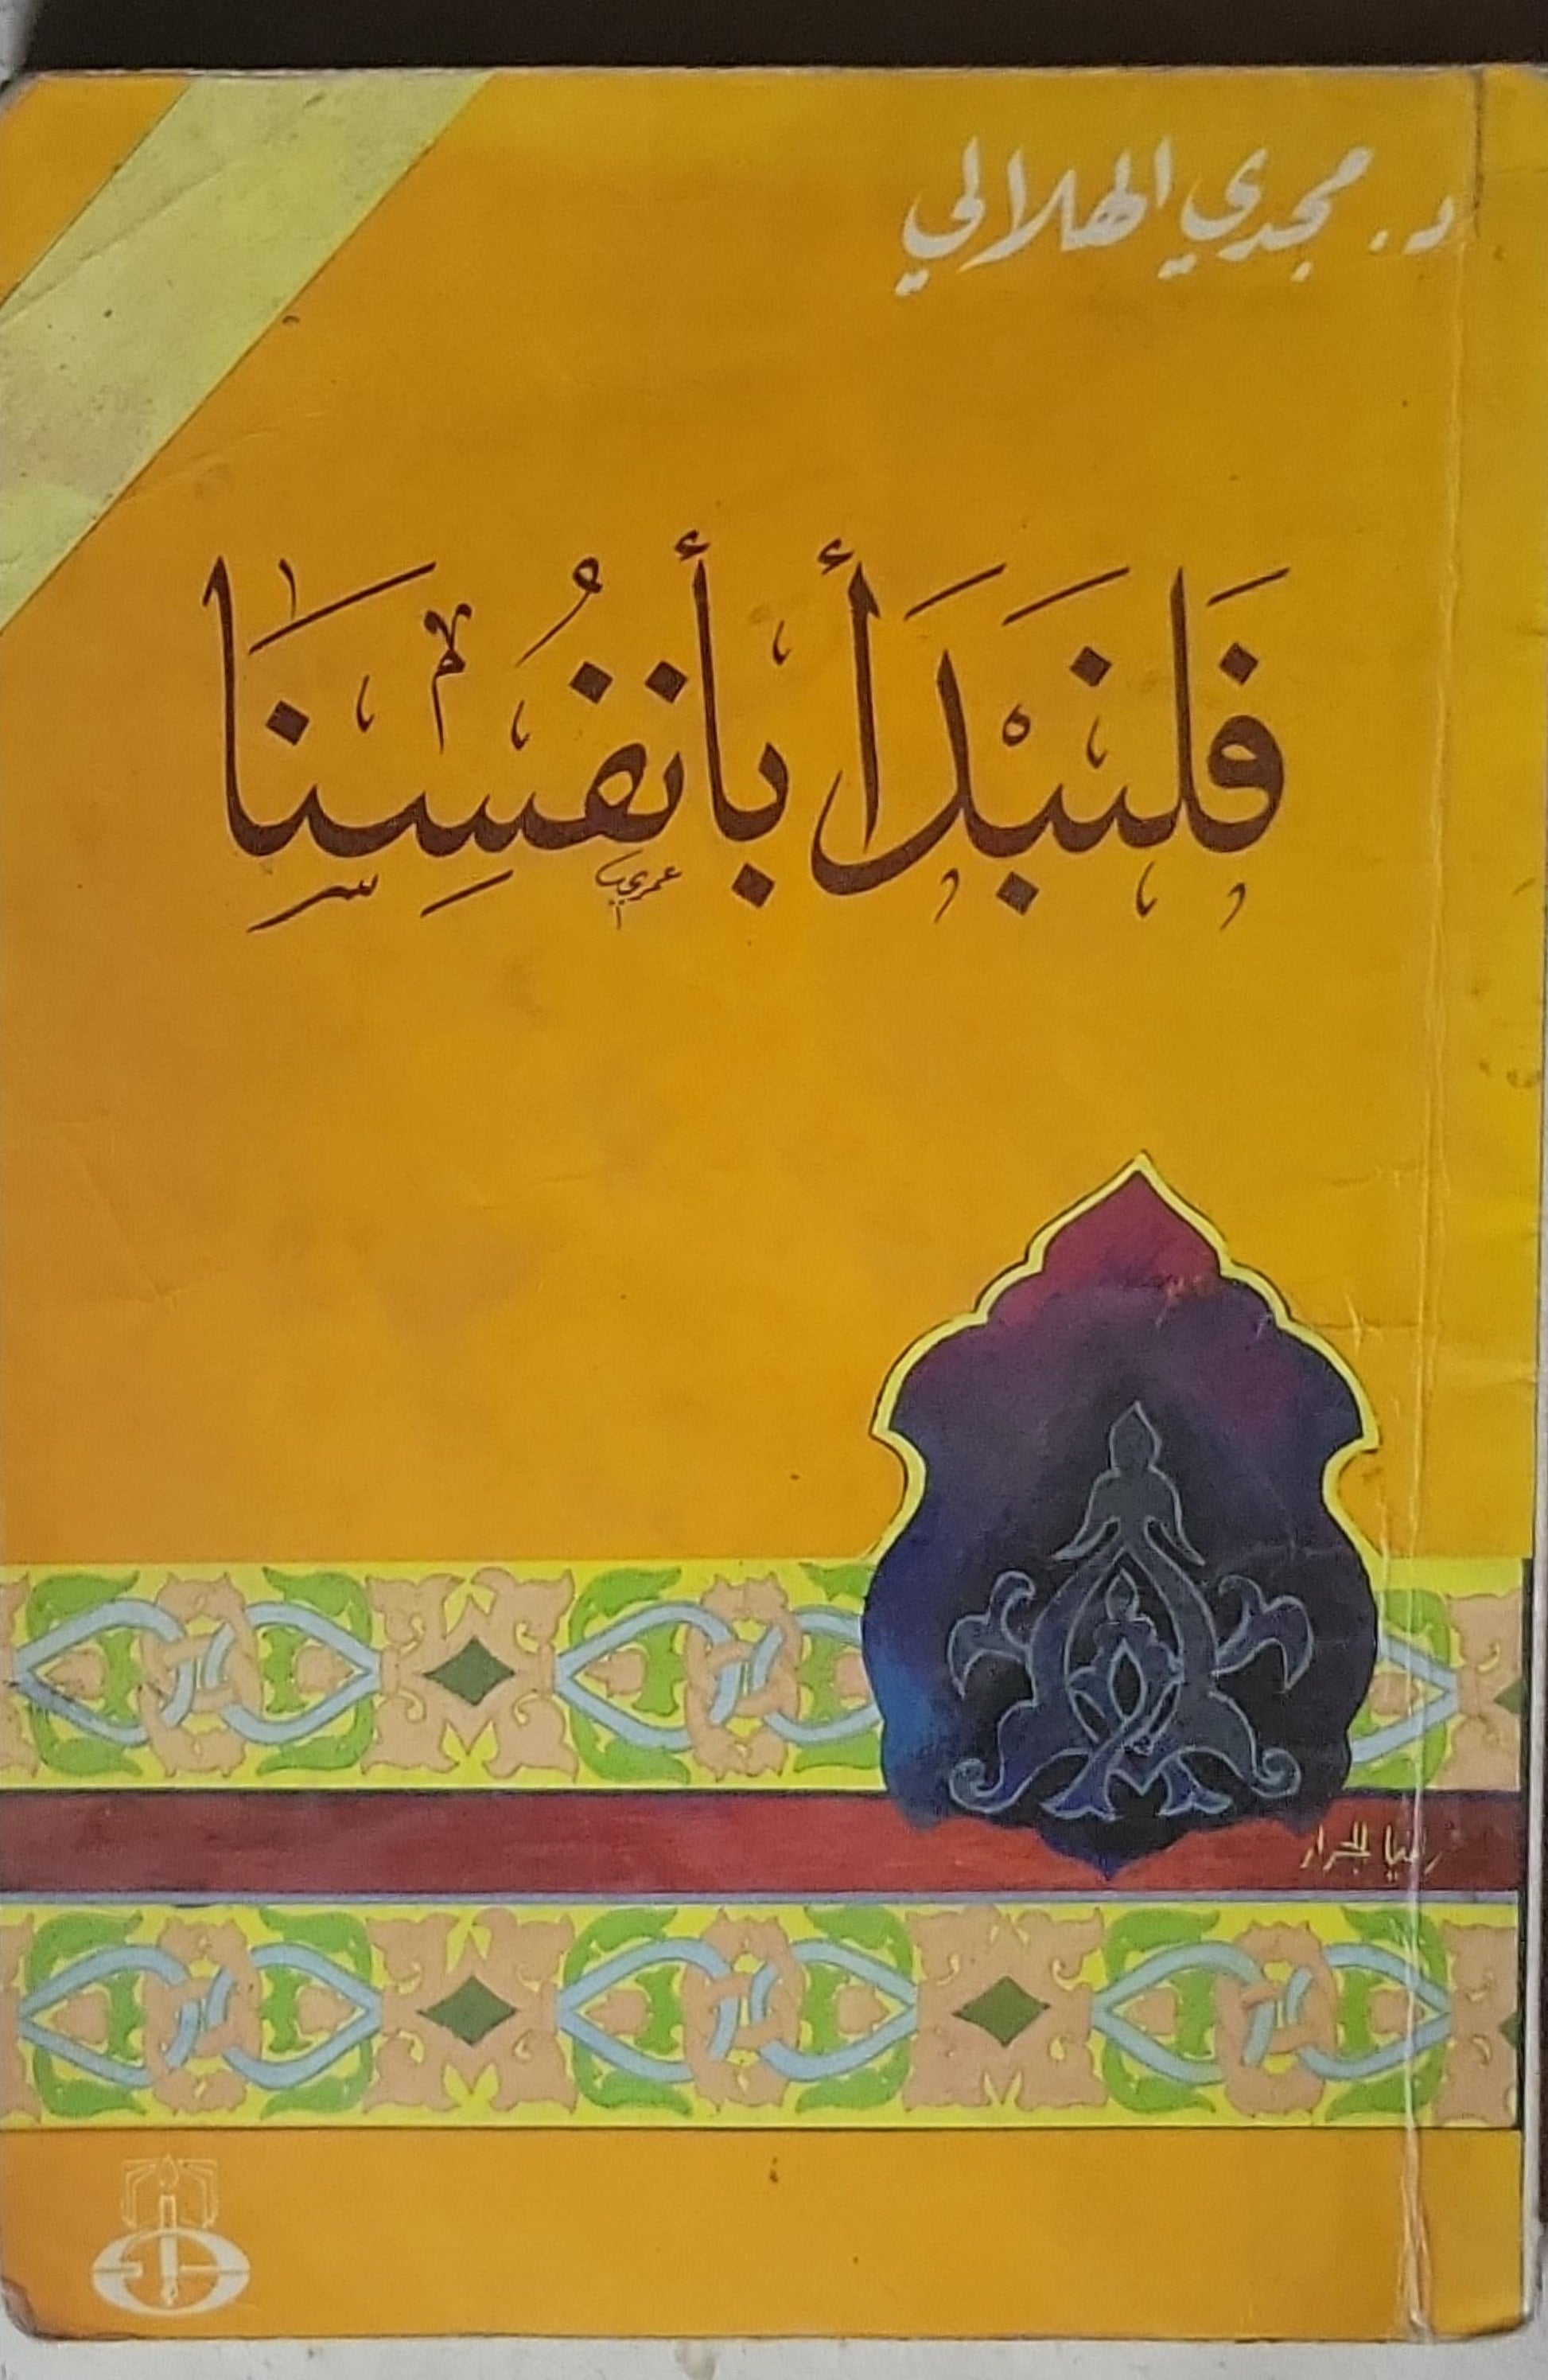 د. مجدي الهلالي
فَلنَبْدَأ بأنفُسِنَا
عمري
رانيا الجرار